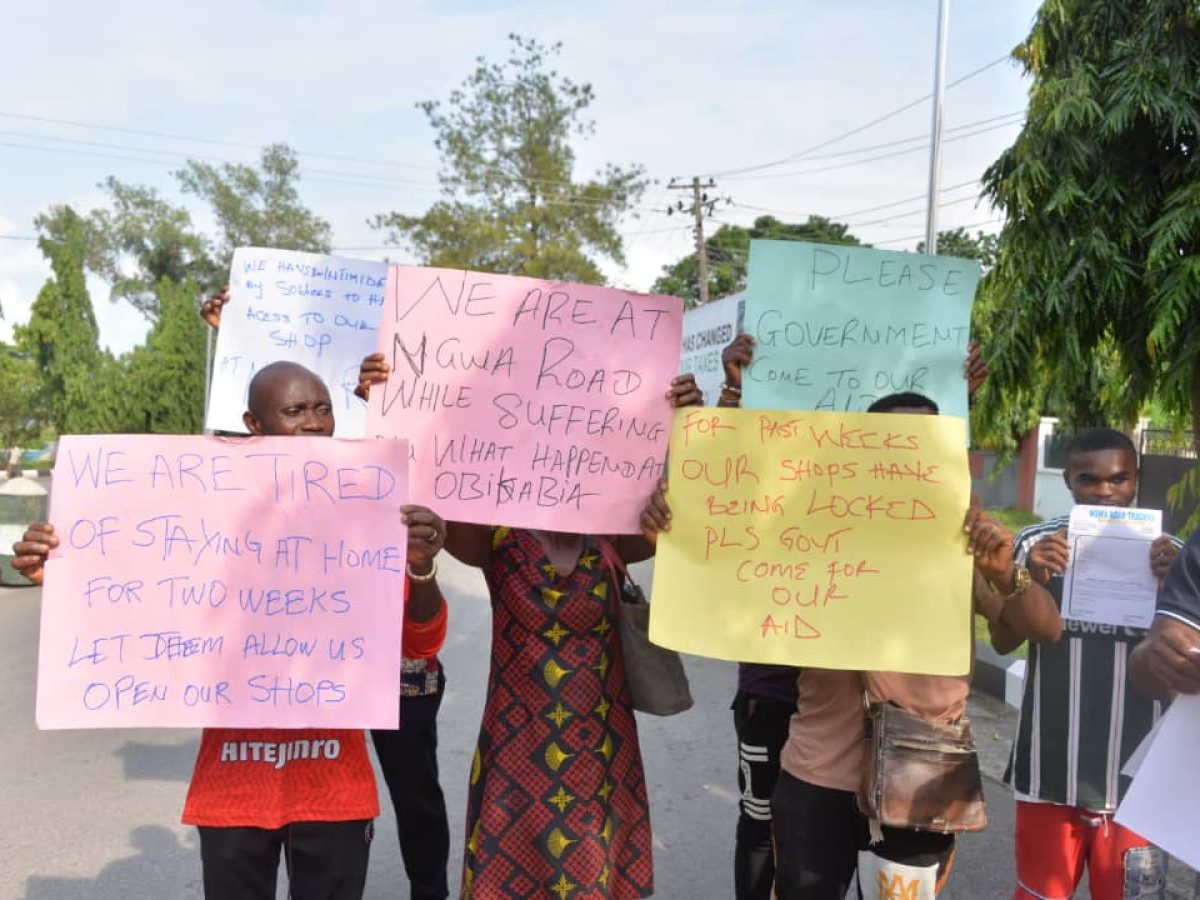 WE HAVE INTIMIDA
BY SOLDIERS TO HA
ACESS TO OUR
SHOP
AT
WE ARE AT
NGWA ROAD
WHILE SUFFERING
WHAT HAPPEND AT
OBIKABIA
HAS CHANGED
TAXES
PLEASE
GOVERNMENT
COME TO OUR
AID
WE ARE TIRED
OF STAYING AT HOME
FOR TWO WEEKS
LET DEEM ALLOW US
OPEN OUR SHOPS
FOR PAST WEEKS
OUR SHOPS HAVE
BEING LOCKED
PLS GOVT
COME FOR
OUR
AID
NGWA ROAD TRADERS
HITEJINRO